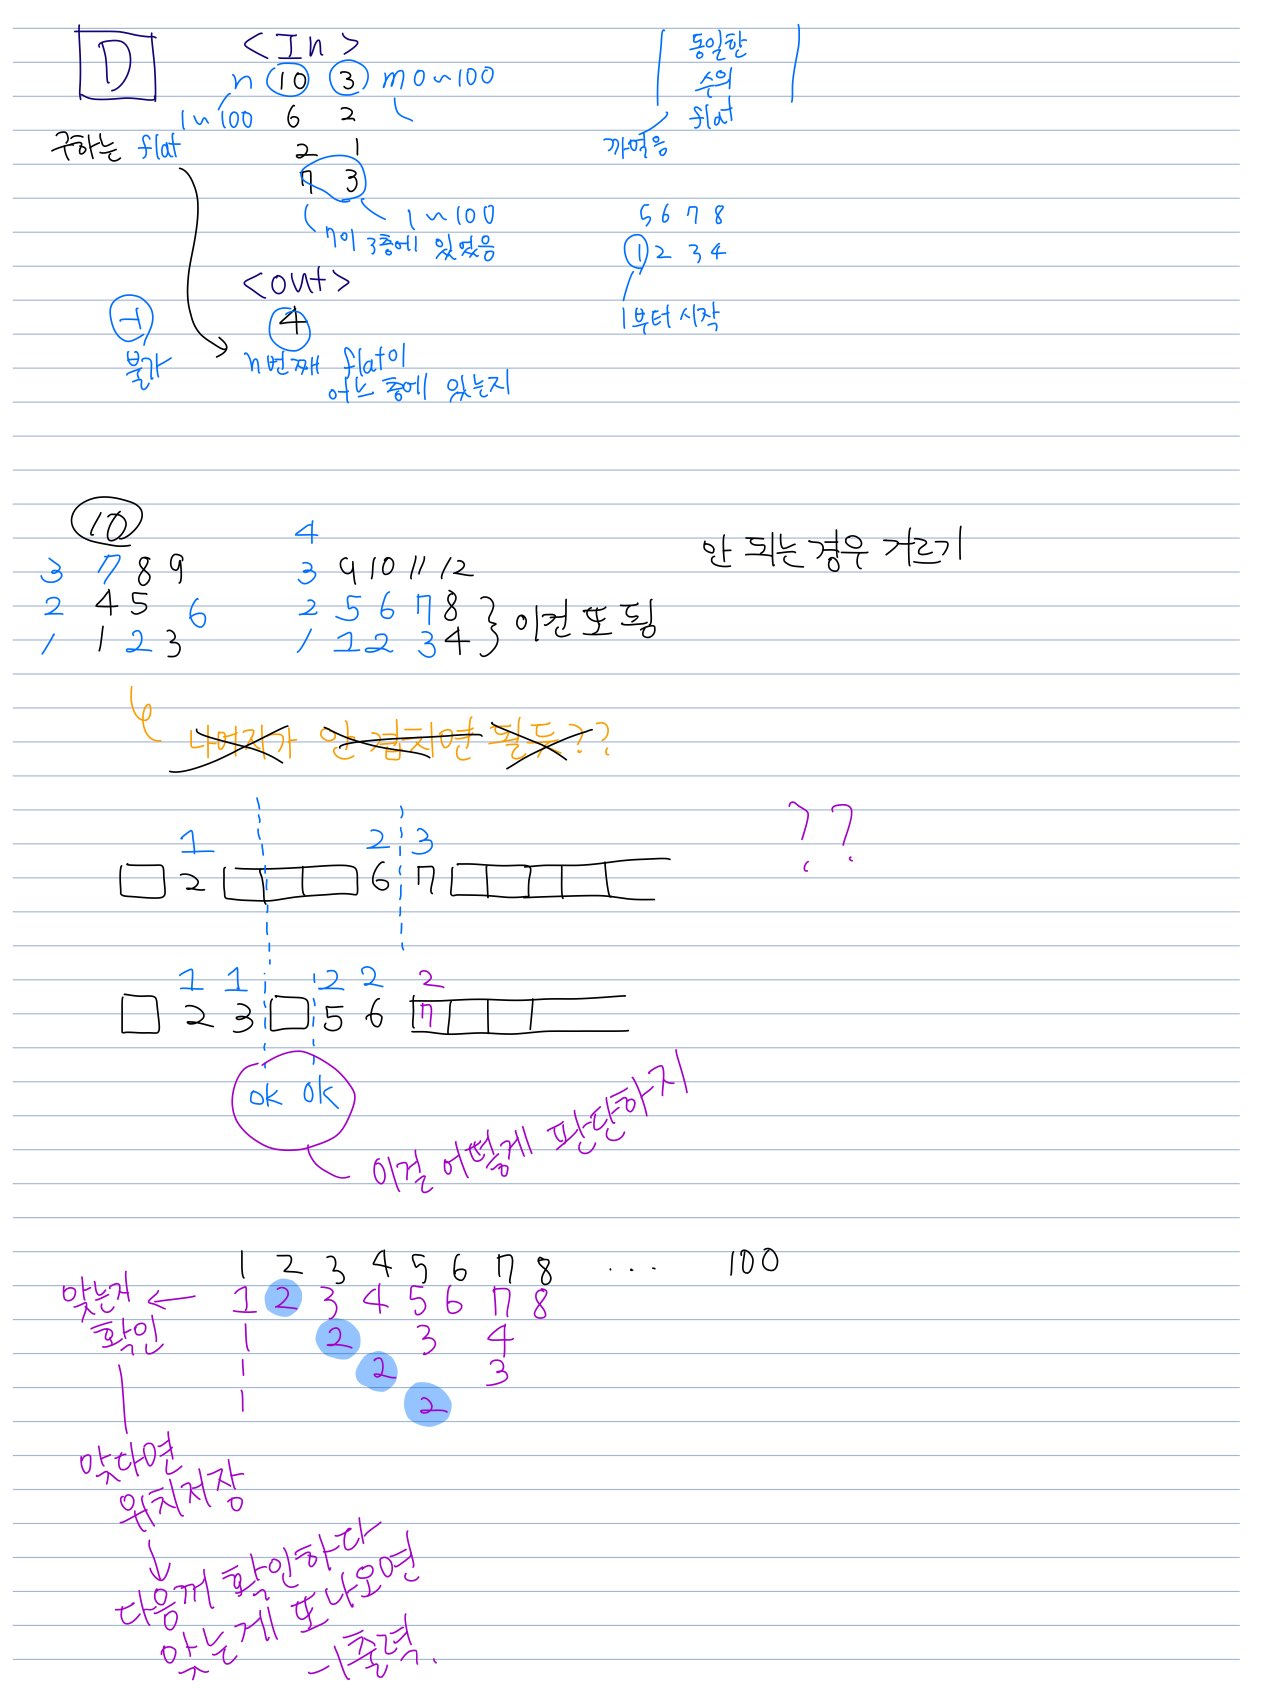 D
<In>
n 10 3 m 0~100
1~100 6 2
구하는 flat
2 1
7 3
1~100
7이 3층에 있었음
<out>
4
-1
불가
n번째 flat이
어느 층에 있는지
동일한
수의
flat
까먹음
5 6 7 8
1 2 3 4
1부터 시작
10
3 7 8 9
2 4 5 6
1 1 2 3
4
3 9 10 11 12
2 5 6 7 8
1 1 2 3 4
이건 또 됨
안 되는 경우 거르기
나머지가 안 겹치면 될듯??
1 2 3
2 6 7
??
1 1 2 2 2
2 3 5 6 7
ok ok
이걸 어떻게 판단하지
1 2 3 4 5 6 7 8 ... 100
맞는지 ← 1 2 3 4 5 6 7 8
확인 1 2 3 4
1 2 3
1 2
맞다면
위치저장
다음꺼 확인하다
맞는게 또 나오면
-1출력.